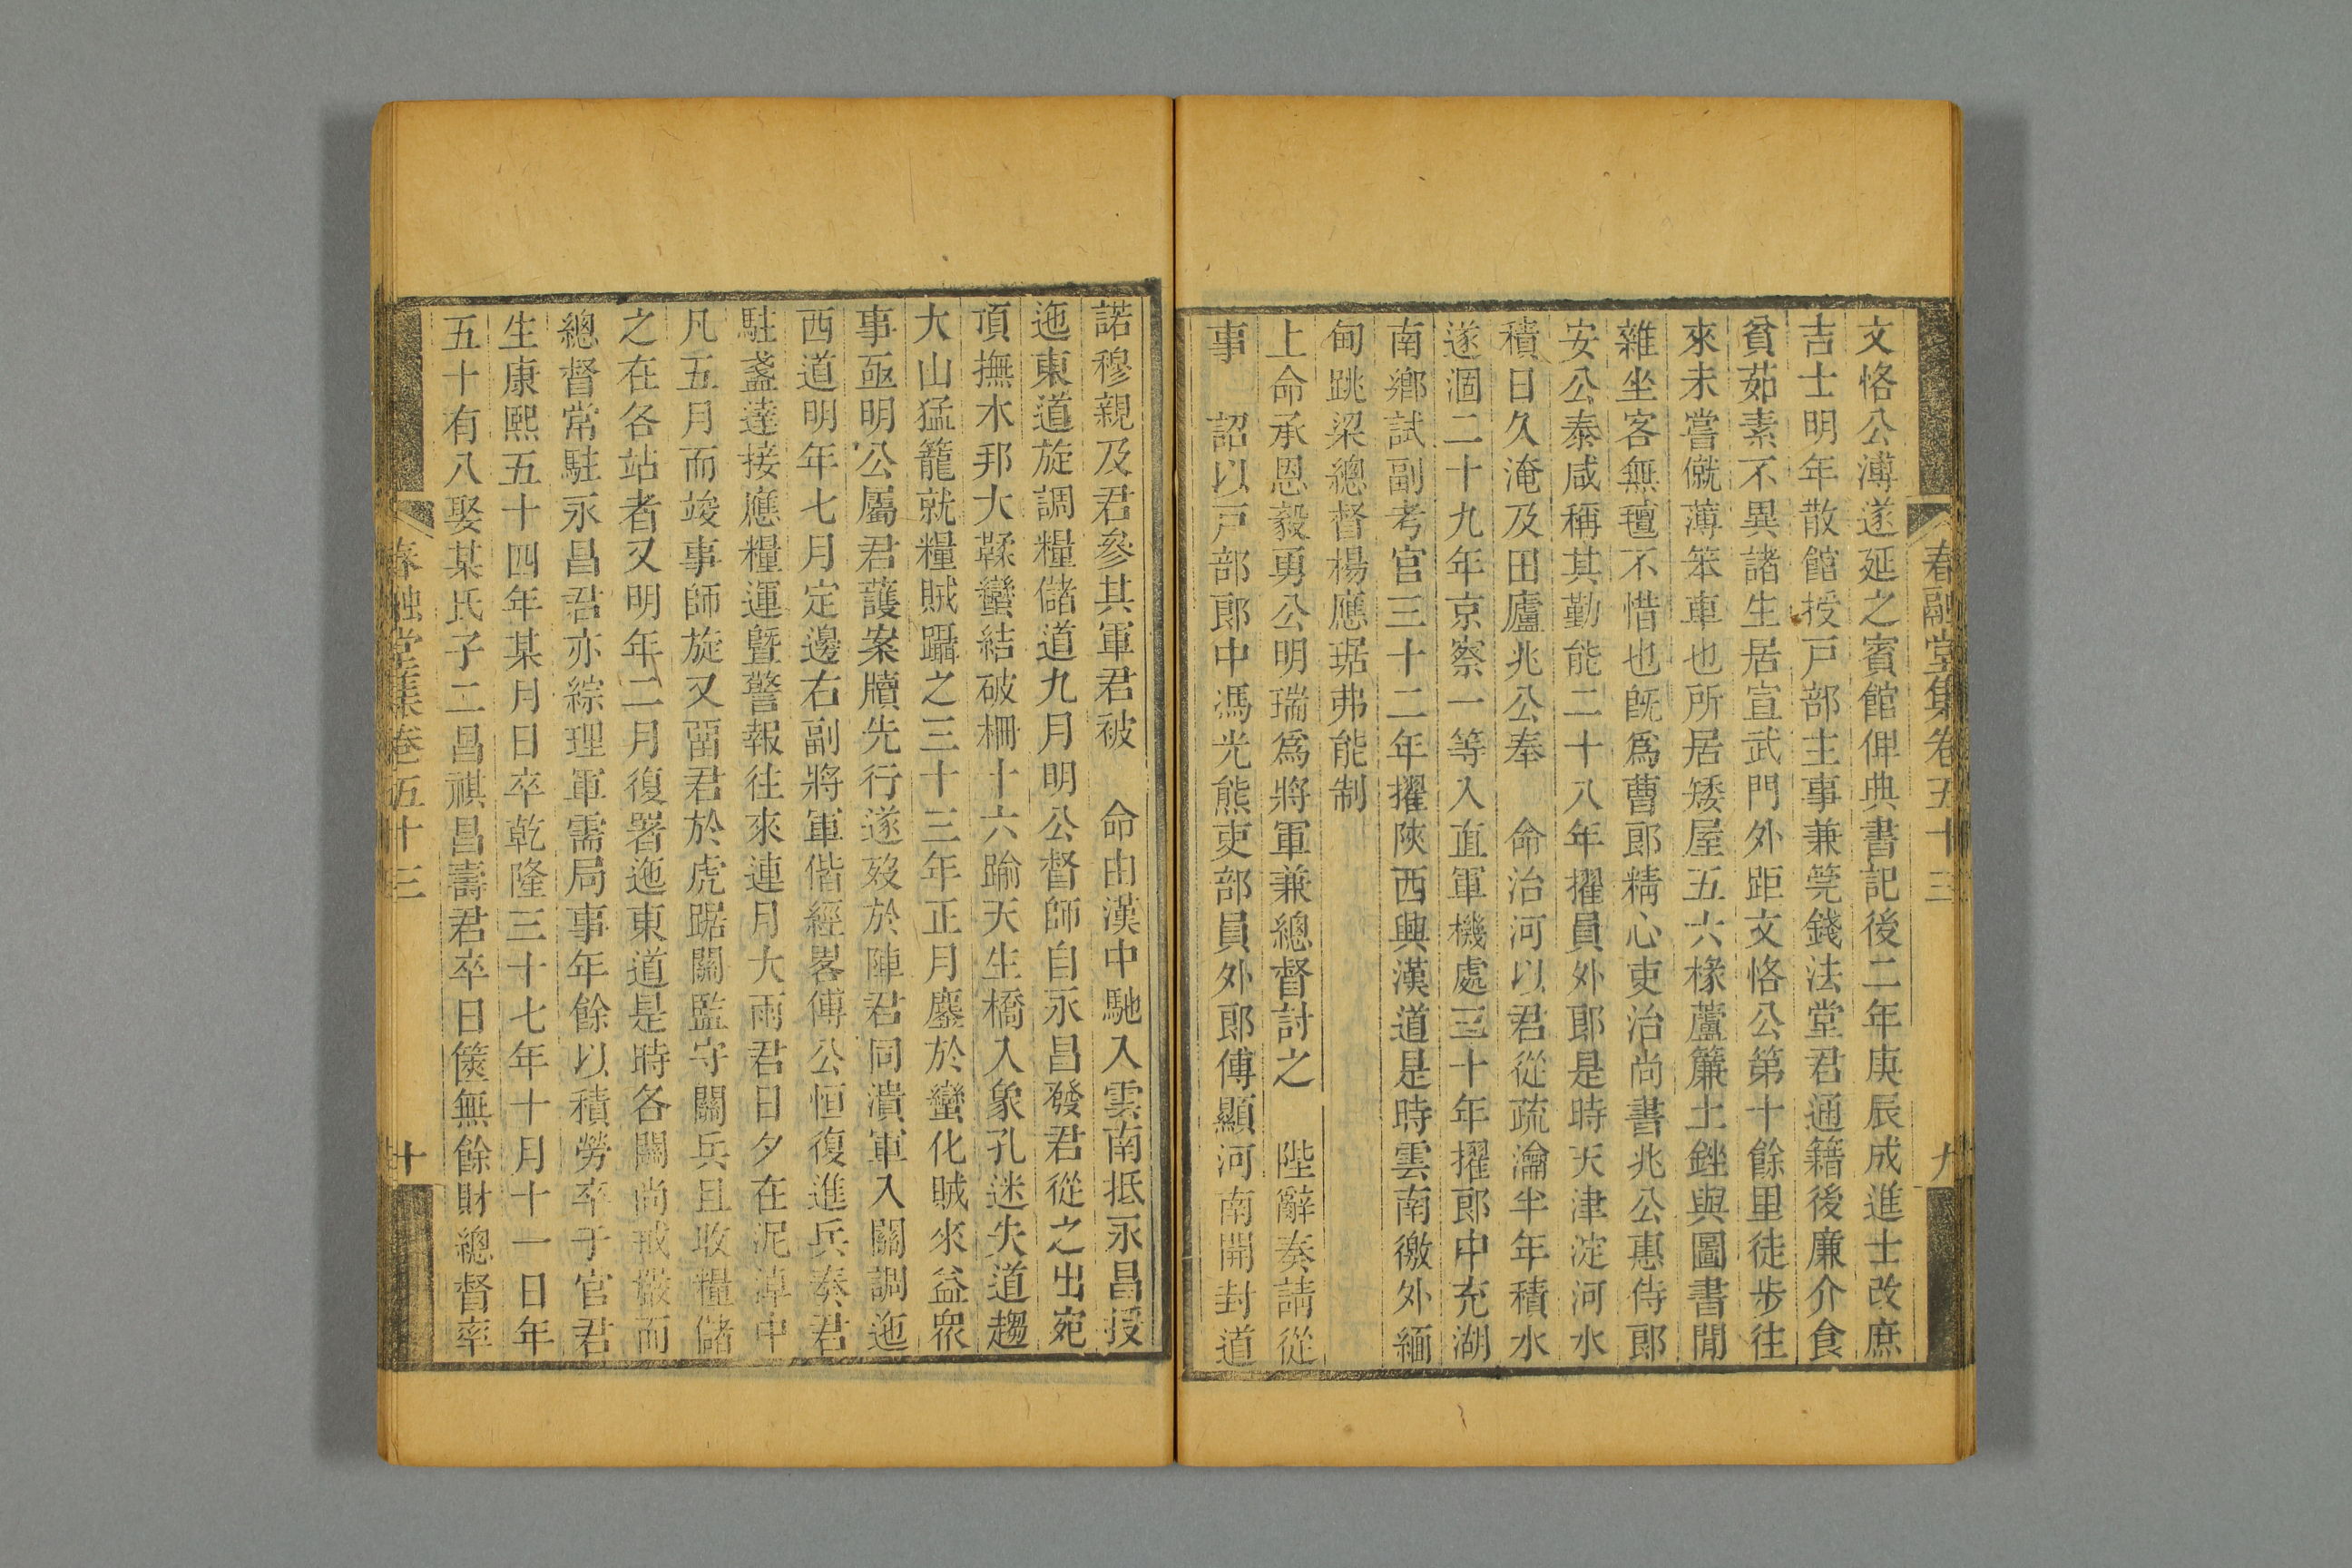 春融堂集卷五十三
九
文恪公溥遂延之賓館俾典書記後二年庚辰成進士改庶
吉士明年散館授戸部主事兼筦錢法堂君通籍後廉介食
貧茹素不異諸生居宣武門外距文恪公第十餘里徒步往
來未嘗僦薄笨車也所居矮屋五六椽蘆簾土銼與圖書閒
雜坐客無氊不惜也旣爲曹郎精心吏治尚書兆公惠侍郎
安公泰咸稱其勤能二十八年擢員外郎是時天津淀河水
積日久淹及田廬兆公奉　命治河以君從疏瀹半年積水
遂涸二十九年京察一等入直軍機處三十年擢郎中充湖
南鄉試副考官三十二年擢陜西興漢道是時雲南徼外緬
甸跳梁總督楊應琚弗能制
上命承恩毅勇公明瑞爲將軍兼總督討之　陛辭奏請從
事　詔以戸部郎中馮光熊吏部員外郎傅顯河南開封道
諾穆親及君參其軍君被　命由漢中馳入雲南抵永昌授
迤東道旋調糧儲道九月明公督師自永昌發君從之出宛
頂撫木邦大鞣蠻結破柵十六踰天生橋入象孔迷失道趨
大山猛籠就糧賊躡之三十三年正月鏖於蠻化賊來益衆
事亟明公屬君護案牘先行遂歿於陣君同潰軍入關調迤
西道明年七月定邊右副將軍偕經畧傅公恒復進兵奏君
駐盞達接應糧運曁警報往來連月大雨君日夕在泥淖中
凡五月而竣事師旋又畱君於虎踞關監守關兵且收糧儲
之在各站者又明年二月復署迤東道是時各關尚戒嚴而
總督常駐永昌君亦綜理軍需局事年餘以積勞卒于官君
生康熙五十四年某月日卒乾隆三十七年十月十一日年
五十有八娶某氏子二昌祺昌壽君卒日篋無餘財總督率
春融堂集卷五十三
十